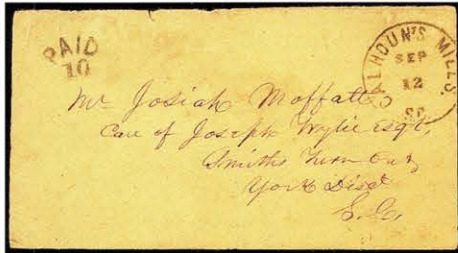 PAID
10
CALHOUN'S MILLS.
SEP
12
Mr Josiah Moffatt
Care of Joseph Wylie esqr,
Smiths Turn Out
York Dist
S.C.